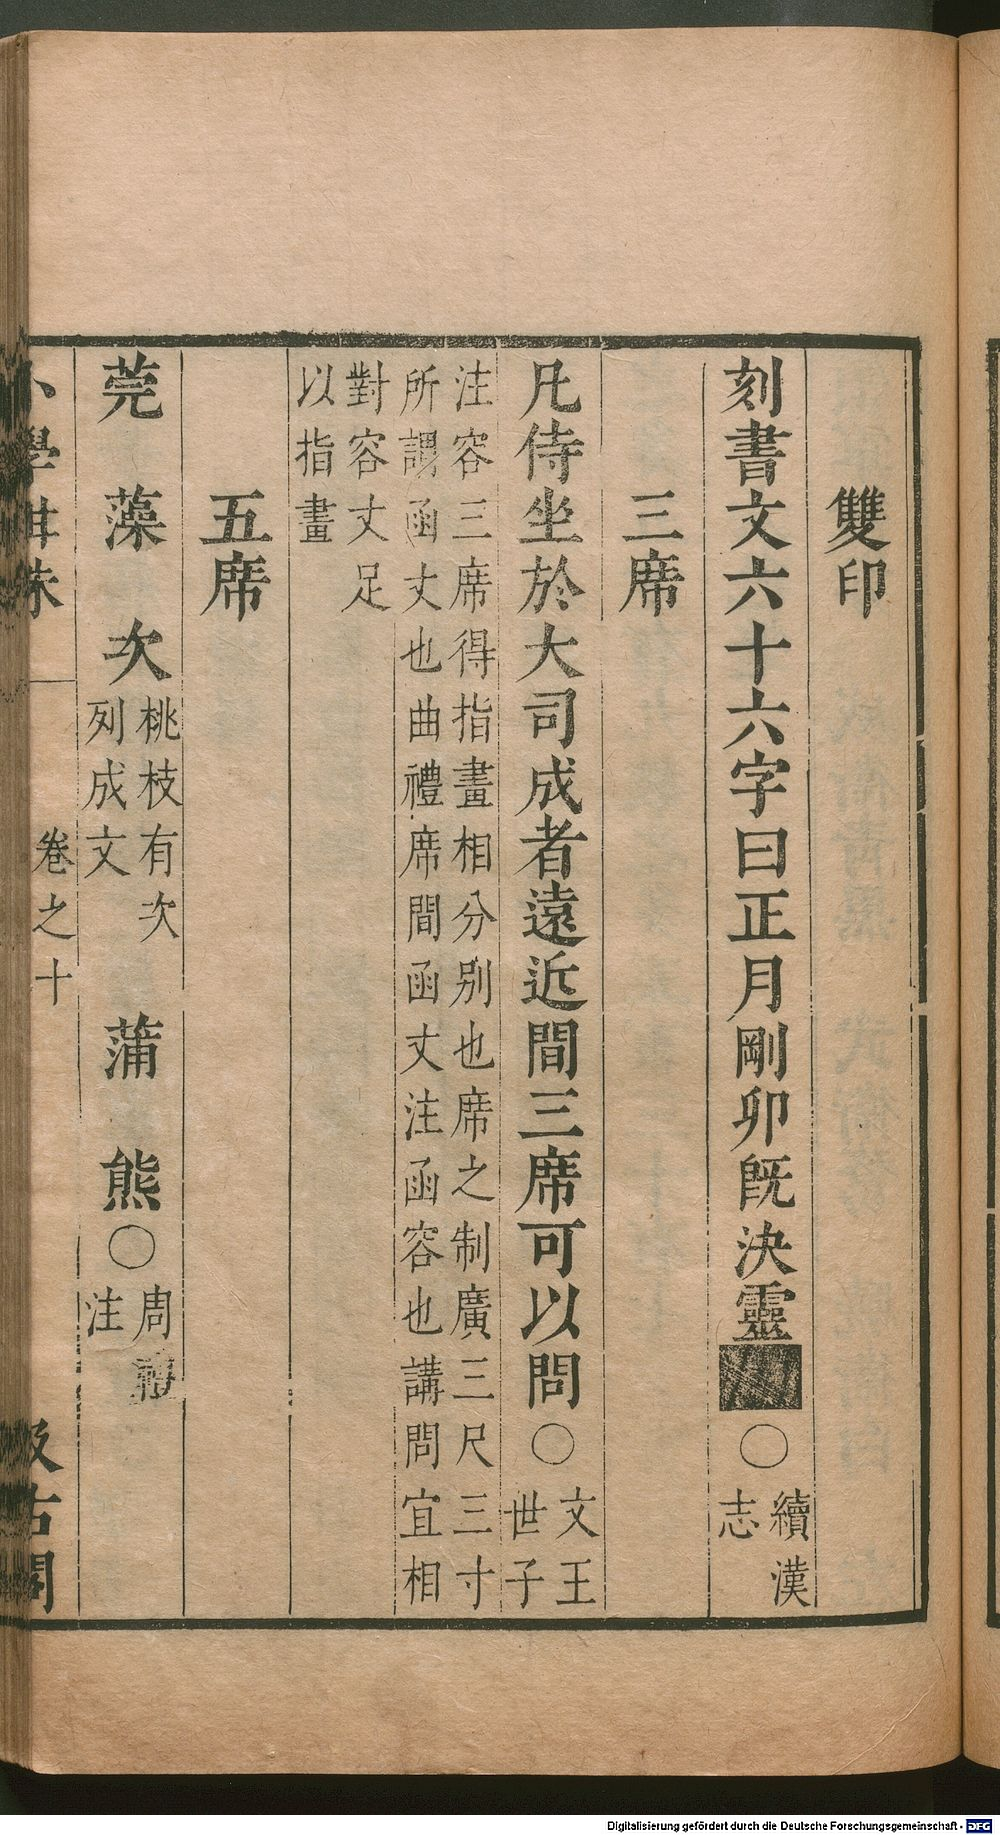 雙印
刻書文六十六字曰正月剛卯旣決靈■○續漢志
三席
凡侍坐於大司成者遠近間三席可以問○文王世子
注容三席得指畫相分別也席之制廣三尺三寸
所謂函丈也曲禮席間函丈注函容也講問宜相
對容丈足
以指畫
五席
莞 藻 次桃枝有次列成文 蒲 熊○周禮注
小學紺珠 卷之十 汲古閣
Digitalisierung gefördert durch die Deutsche Forschungsgemeinschaft - DFG